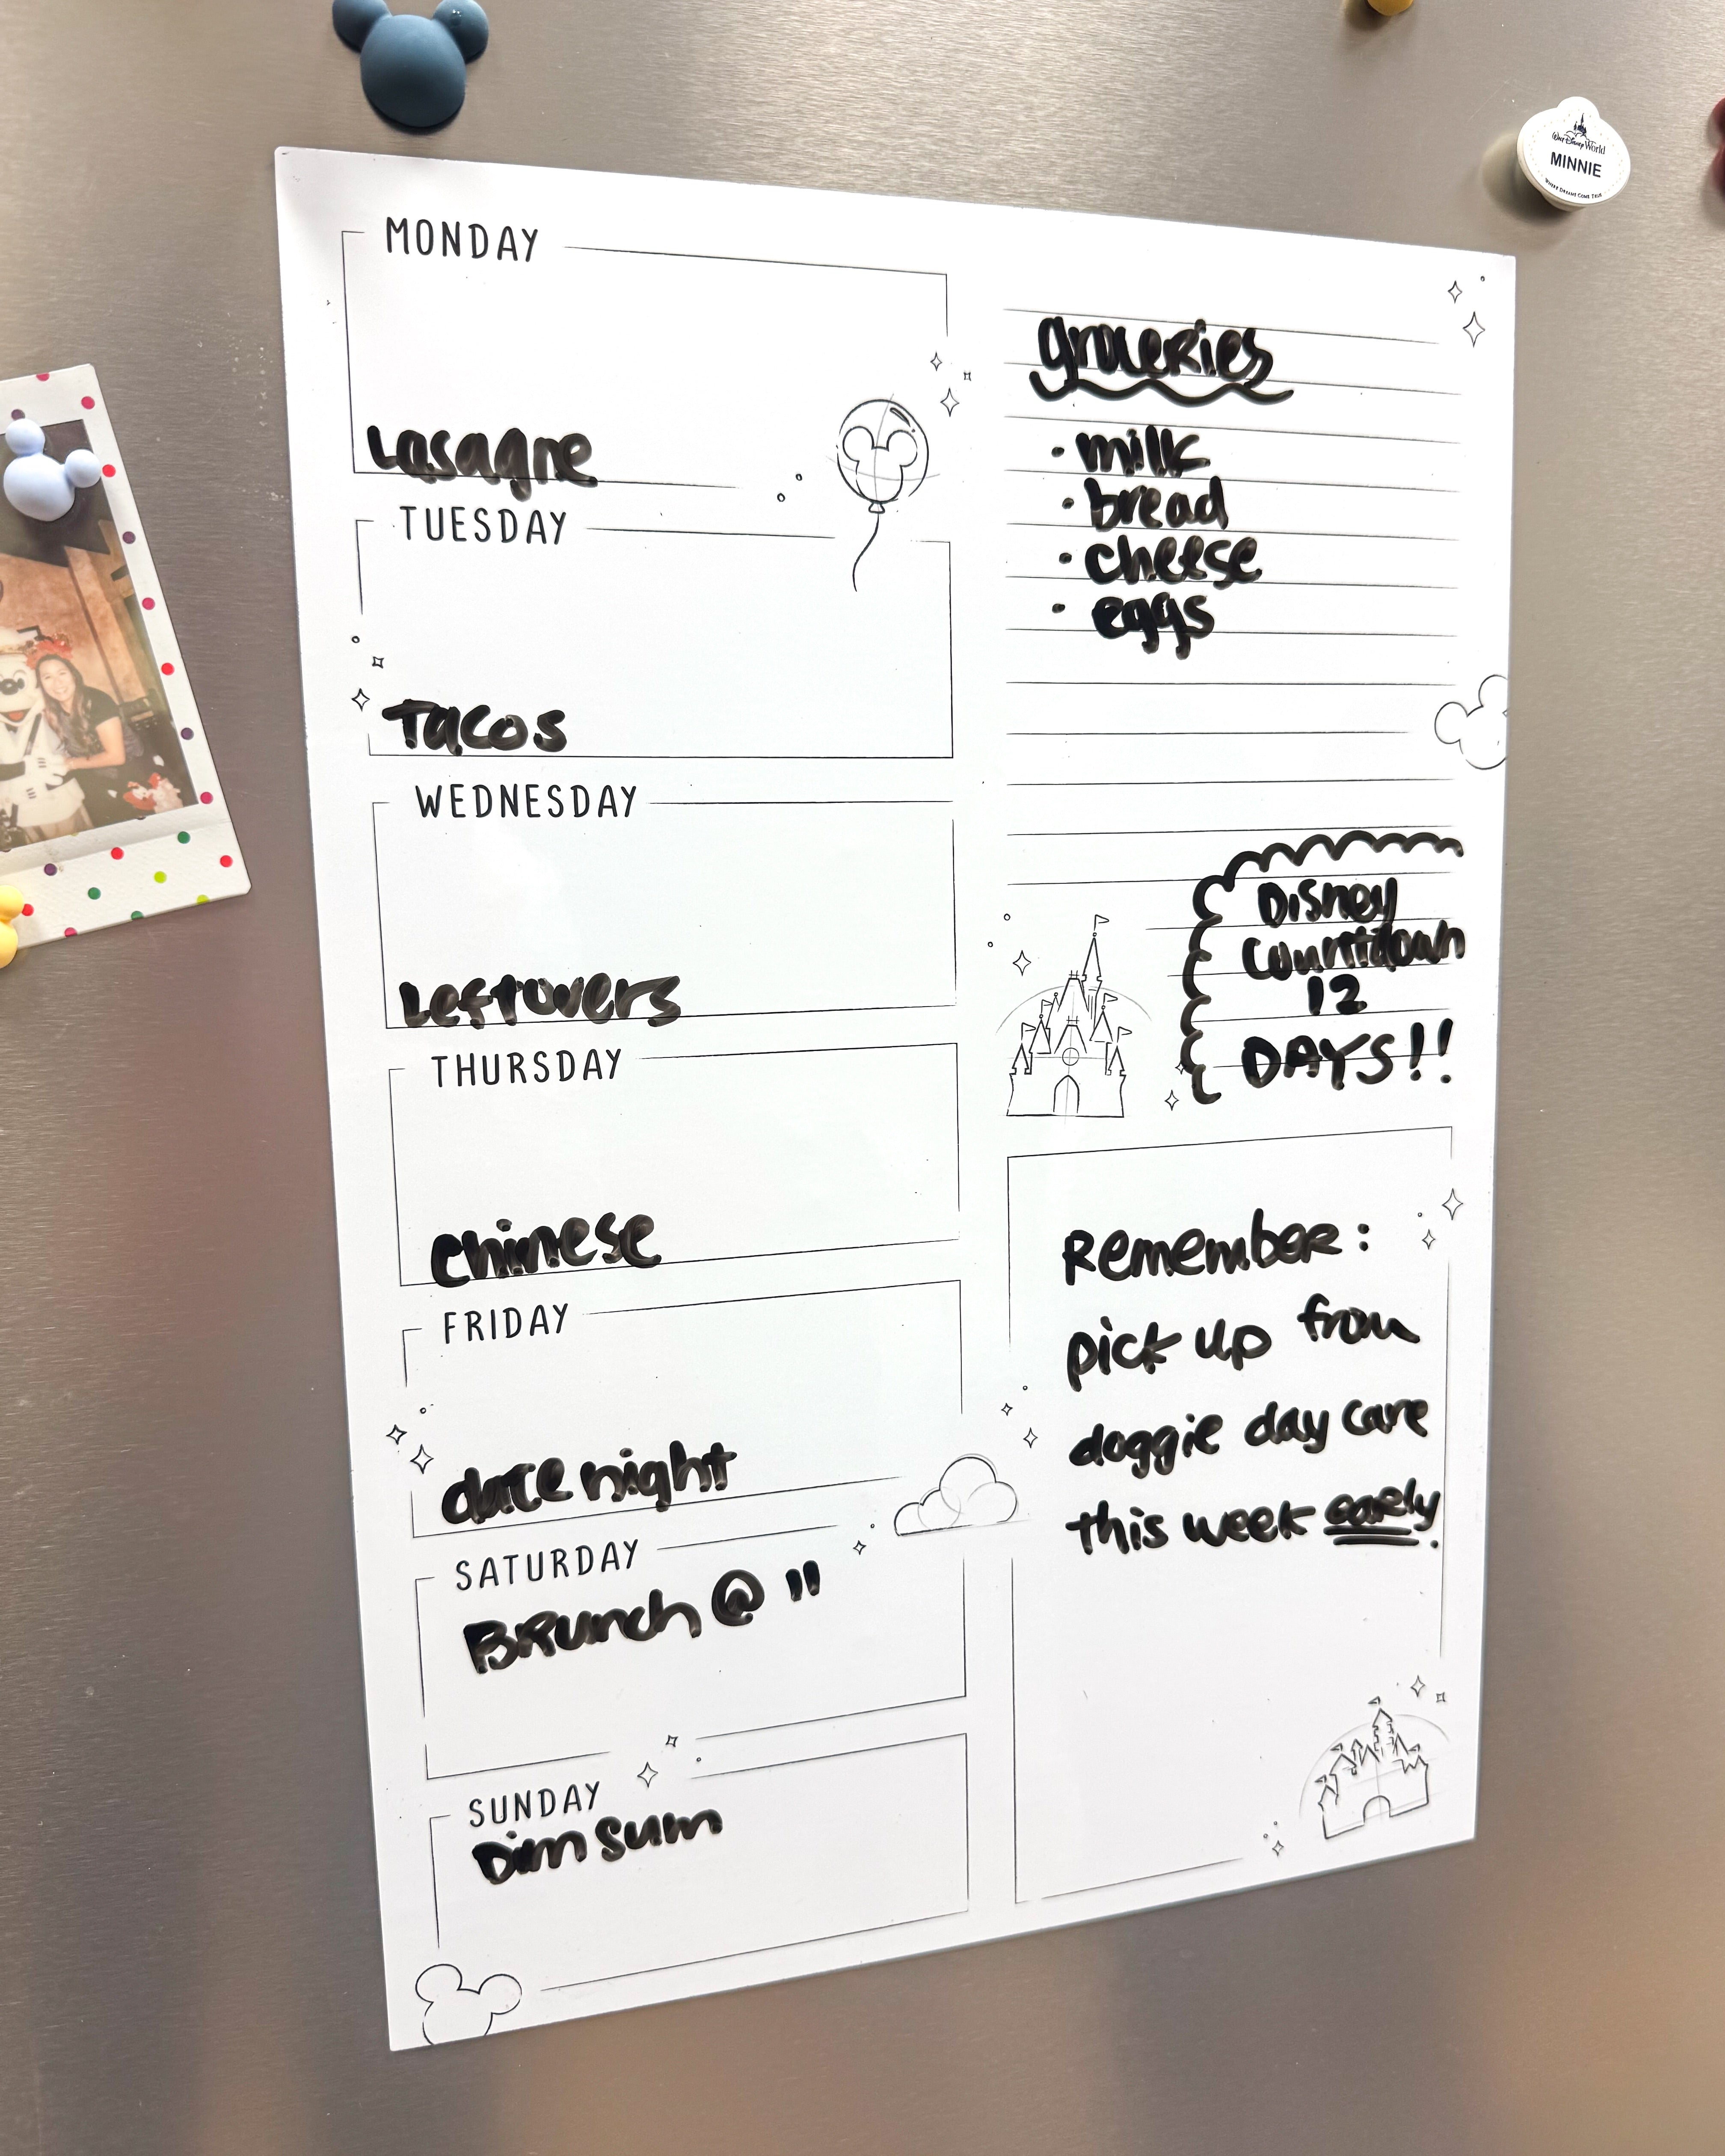 Walt Disney World
MINNIE
WHERE DREAMS COME TRUE
MONDAY
Lasagne
TUESDAY
Tacos
WEDNESDAY
Leftovers
THURSDAY
Chinese
FRIDAY
date night
SATURDAY
Brunch @ 11
SUNDAY
Dim Sum
groceries
· milk
· bread
· cheese
· eggs
Disney
Countdown
12
DAYS!!
Remember:
pick up from
doggie day care
this week early.